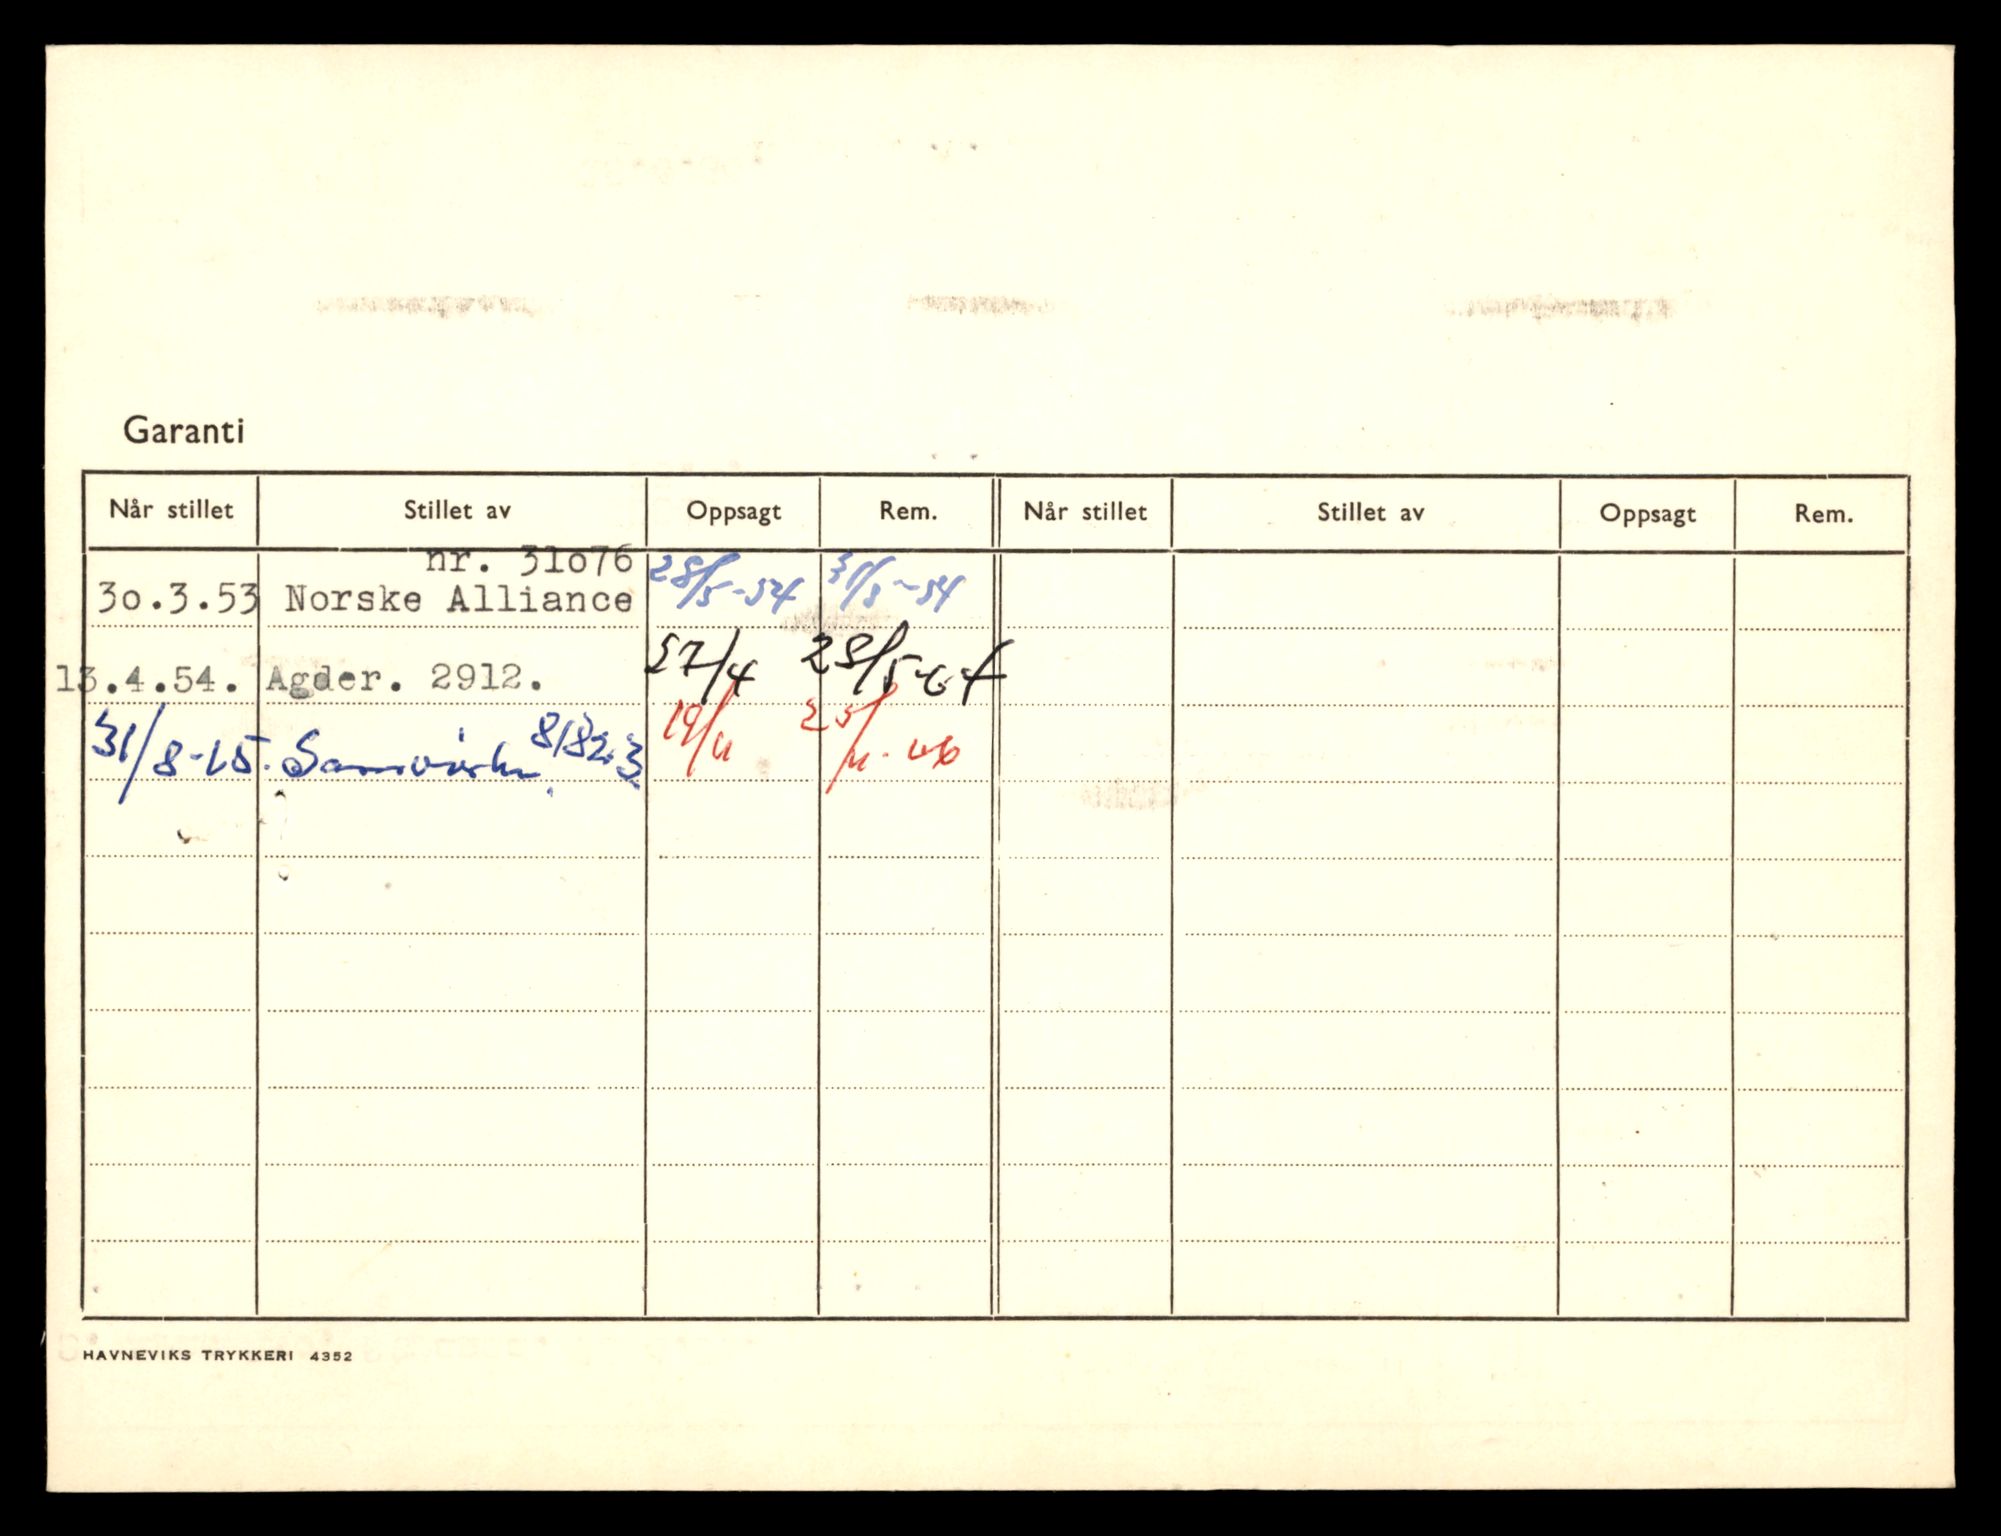 Garanti
Når stillet Stillet av Oppsagt Rem. Når stillet Stillet av Oppsagt Rem.
nr. 31o76
3o.3.53 Norske Alliance 28/5-54 31/8-54
13.4.54. Agder. 2912. 27/4 28/5-64
31/8-65. Samvirke 81823 19/11 25/11-
HAVNEVIKS TRYKKERI 4352